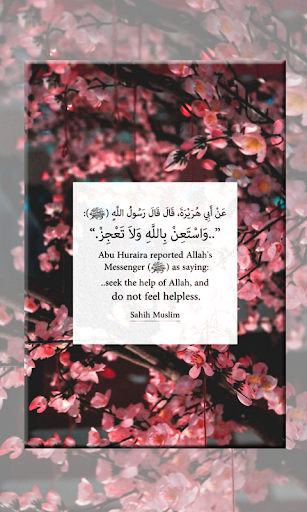 عَنْ أَبِي هُرَيْرَةَ، قَالَ قَالَ رَسُولُ اللَّهِ (ﷺ):
”..وَاسْتَعِنْ بِاللَّهِ وَلاَ تَعْجِزْ.“
Abu Huraira reported Allah's
Messenger (ﷺ) as saying:
..seek the help of Allah, and
do not feel helpless.
Sahih Muslim